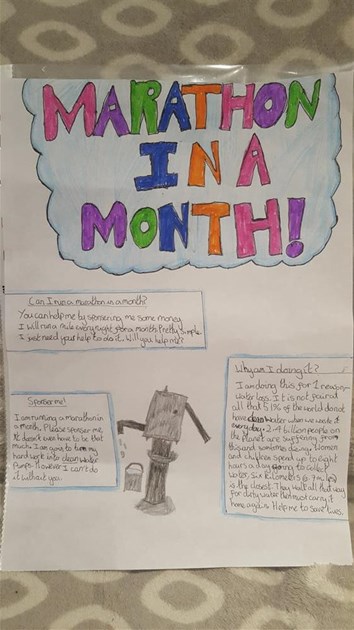 MARATHON
IN A
MONTH!
Can I run a marathon in a month?
You can help me by sponsering me some money
I will run a mile every night for a month. Pretty simple.
I just need your help to do it. Will you help me?
Sponser me!
I am running a marathon in
a month. Please sponser me,
it doesn't even have to be that
much. I am going to turn my
hard work into clean water
pumps. However I can't do
it without you.
Why am I doing it?
I am doing this for 1 reason,
water loss. It is not fair
all that 51% of the world do not
have clean water when we waste it
everyday. 2.4 billion people on
the planet are suffering from
this and some die. Women
and children spend up to eight
hours a day going to collect
water, six kilometres
is the closest. They walk all that way
for dirty water that must carry it
home again. Help me to save lives.